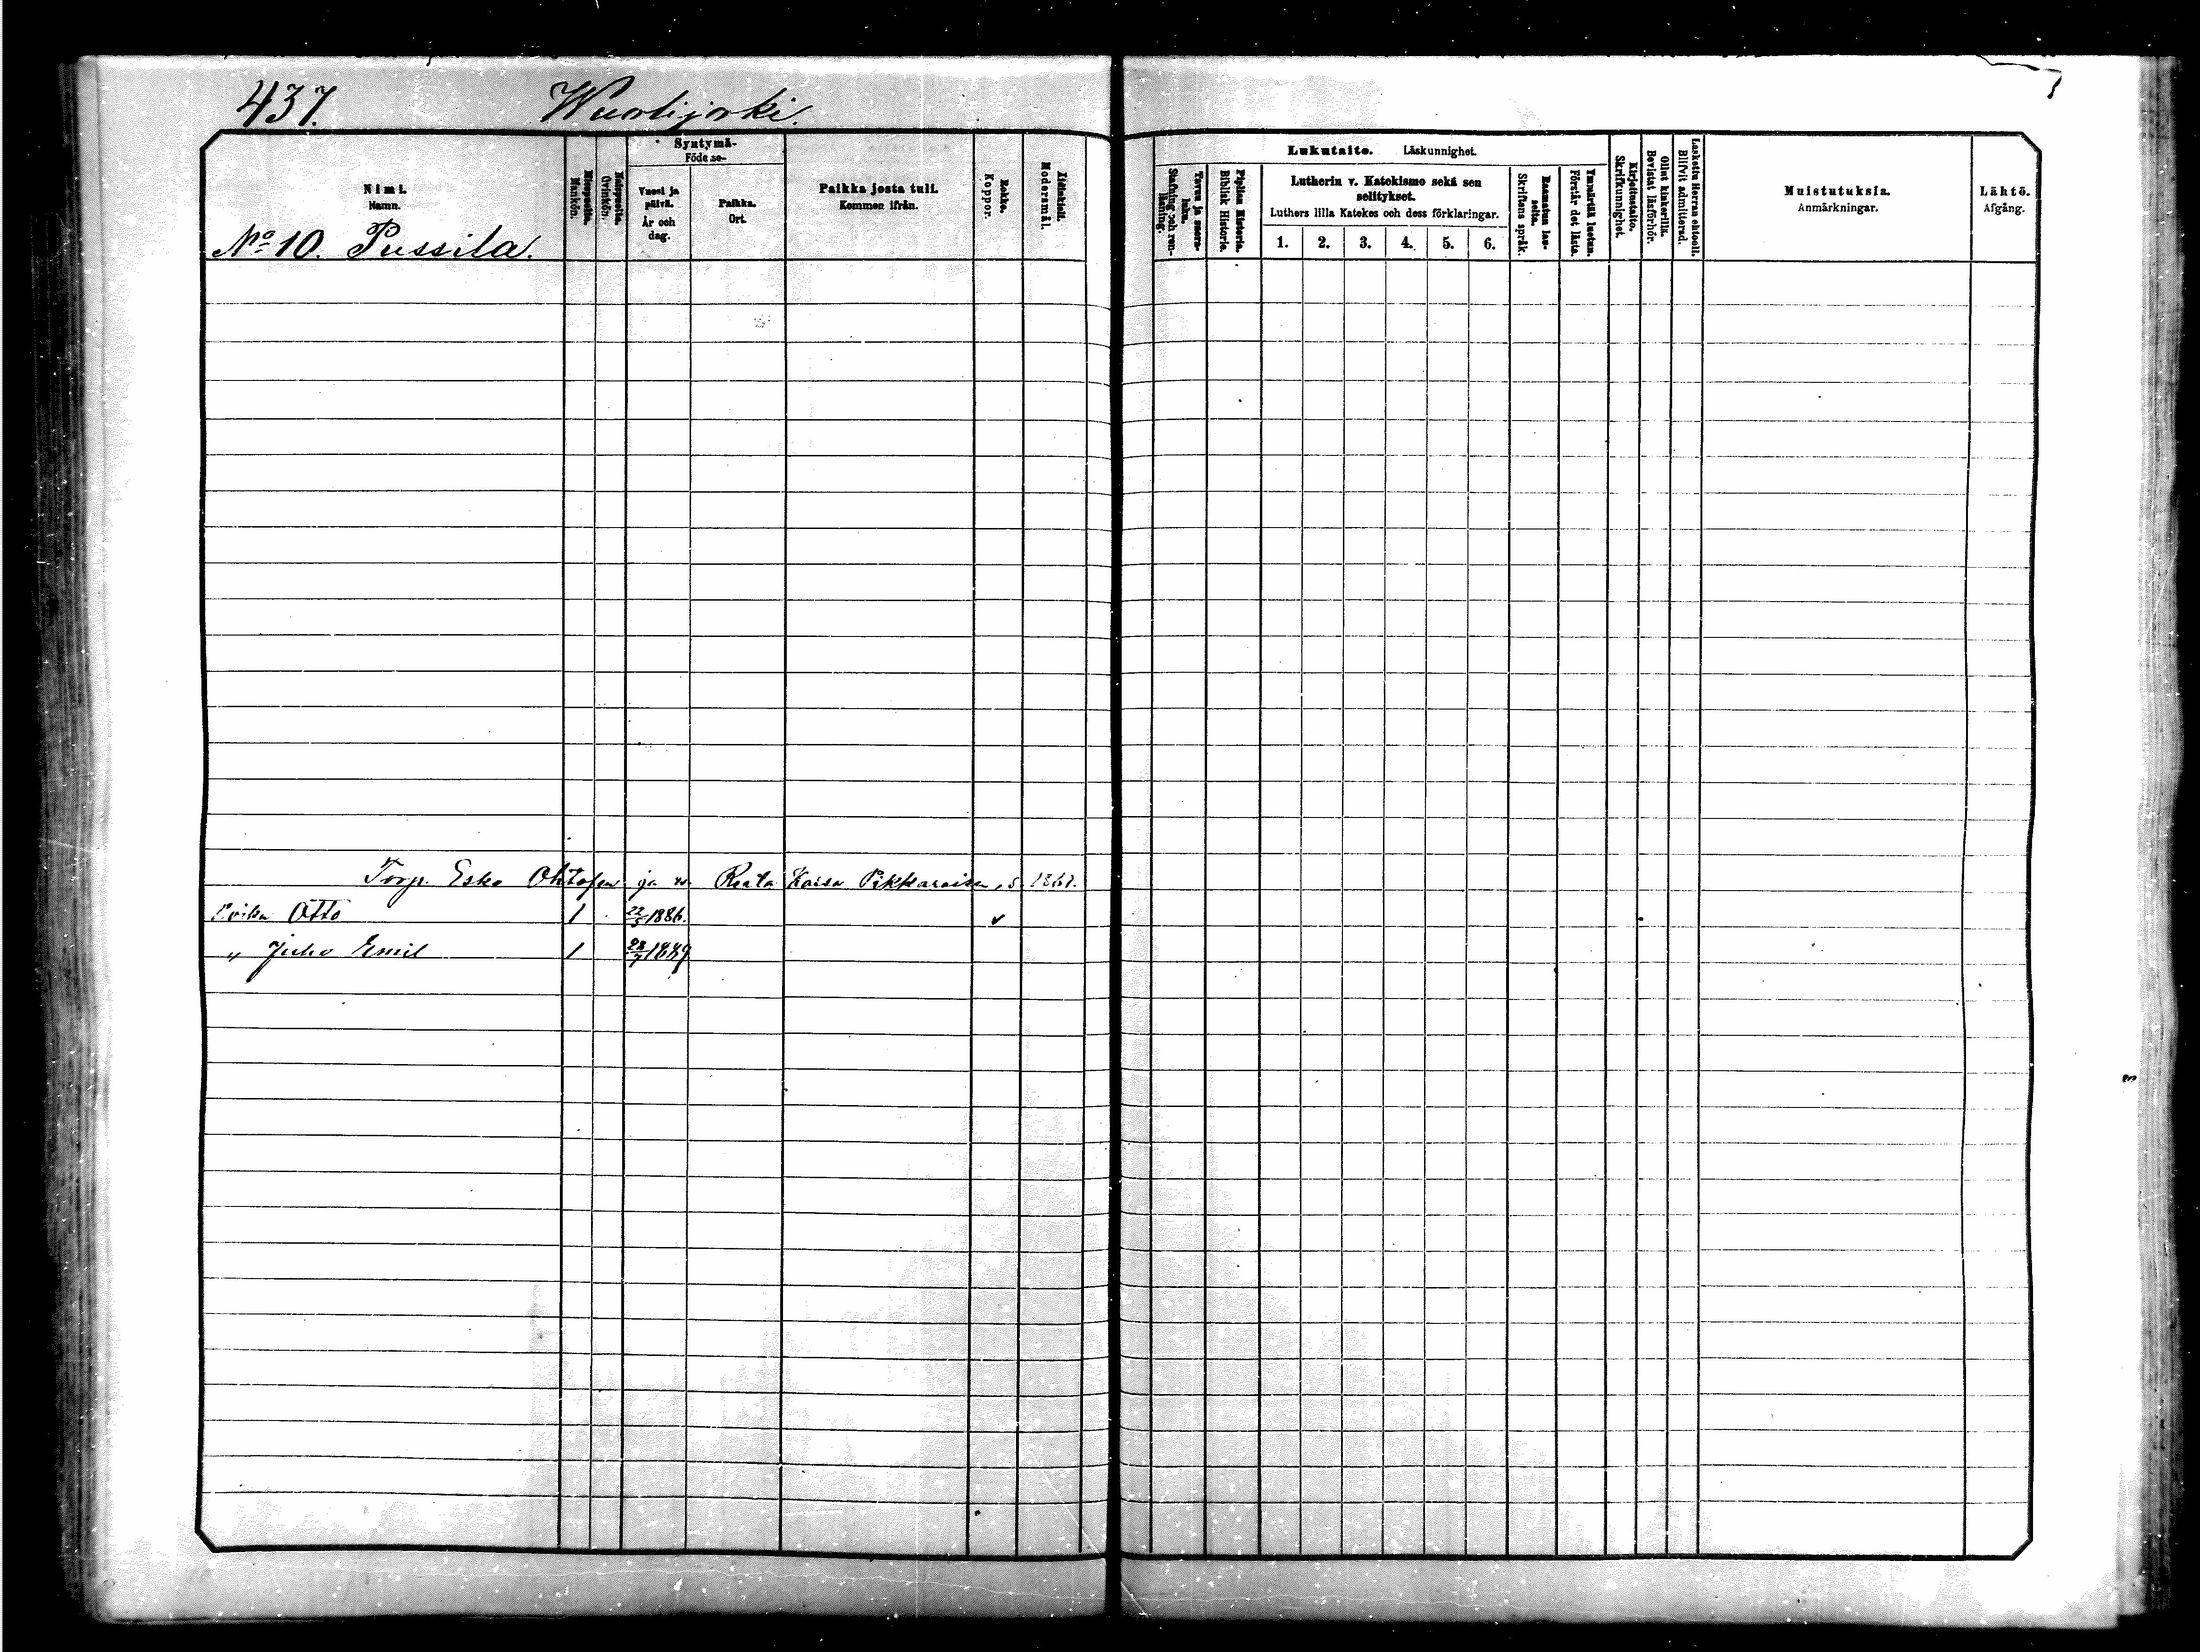 437. Wuolijoki.
Nimi.
Namn.
Miespuolia.
Mankön.
Naispuolia.
Qvinkön.
Syntymä-
Födelse-
Vuosi ja päivä.
År och dag.
Paikka.
Ort.
Paikka josta tuli.
Kommen ifrån.
Rokko.
Koppor.
Äidinkieli.
Modersmål.
Lukutaito. Läskunnighet.
Tavuu ja suora-luku.
Stafning och ren-läsning.
Piplian Historia.
Biblisk Historia.
Lutherin v. Katekismo sekä sen selitykset.
Luthers lilla Katekes och dess förklaringar.
1. 2. 3. 4. 5. 6.
Skriftens språk.
Ymmärtää luetun.
Förstår det lästa.
Kirjoitustaito.
Skrifkunnighet.
Ollut kinkerillä.
Bevistat läsförhör.
Laskettu Herran ehtoolli.
Blifvit admitterad.
Muistutuksia.
Anmärkningar.
Lähtö.
Afgång.
No 10. Pussila.
Torp. Esko ja v. Reeta Kaisa Pikkaraisen, s. 1861.
Poika Otto 1 22/5 1886.
" Juho Emil 1 28/7 1889